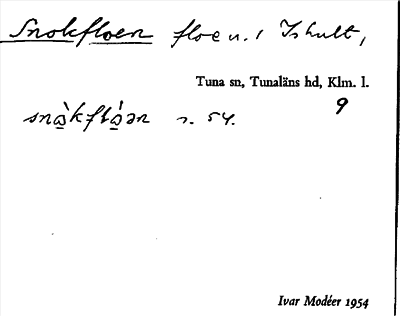 Snokfloen floe u. / Ishult,
Tuna sn, Tunaläns hd, Klm. l.
9
snò̲kfló̲ən s. 54.
Ivar Modéer 1954